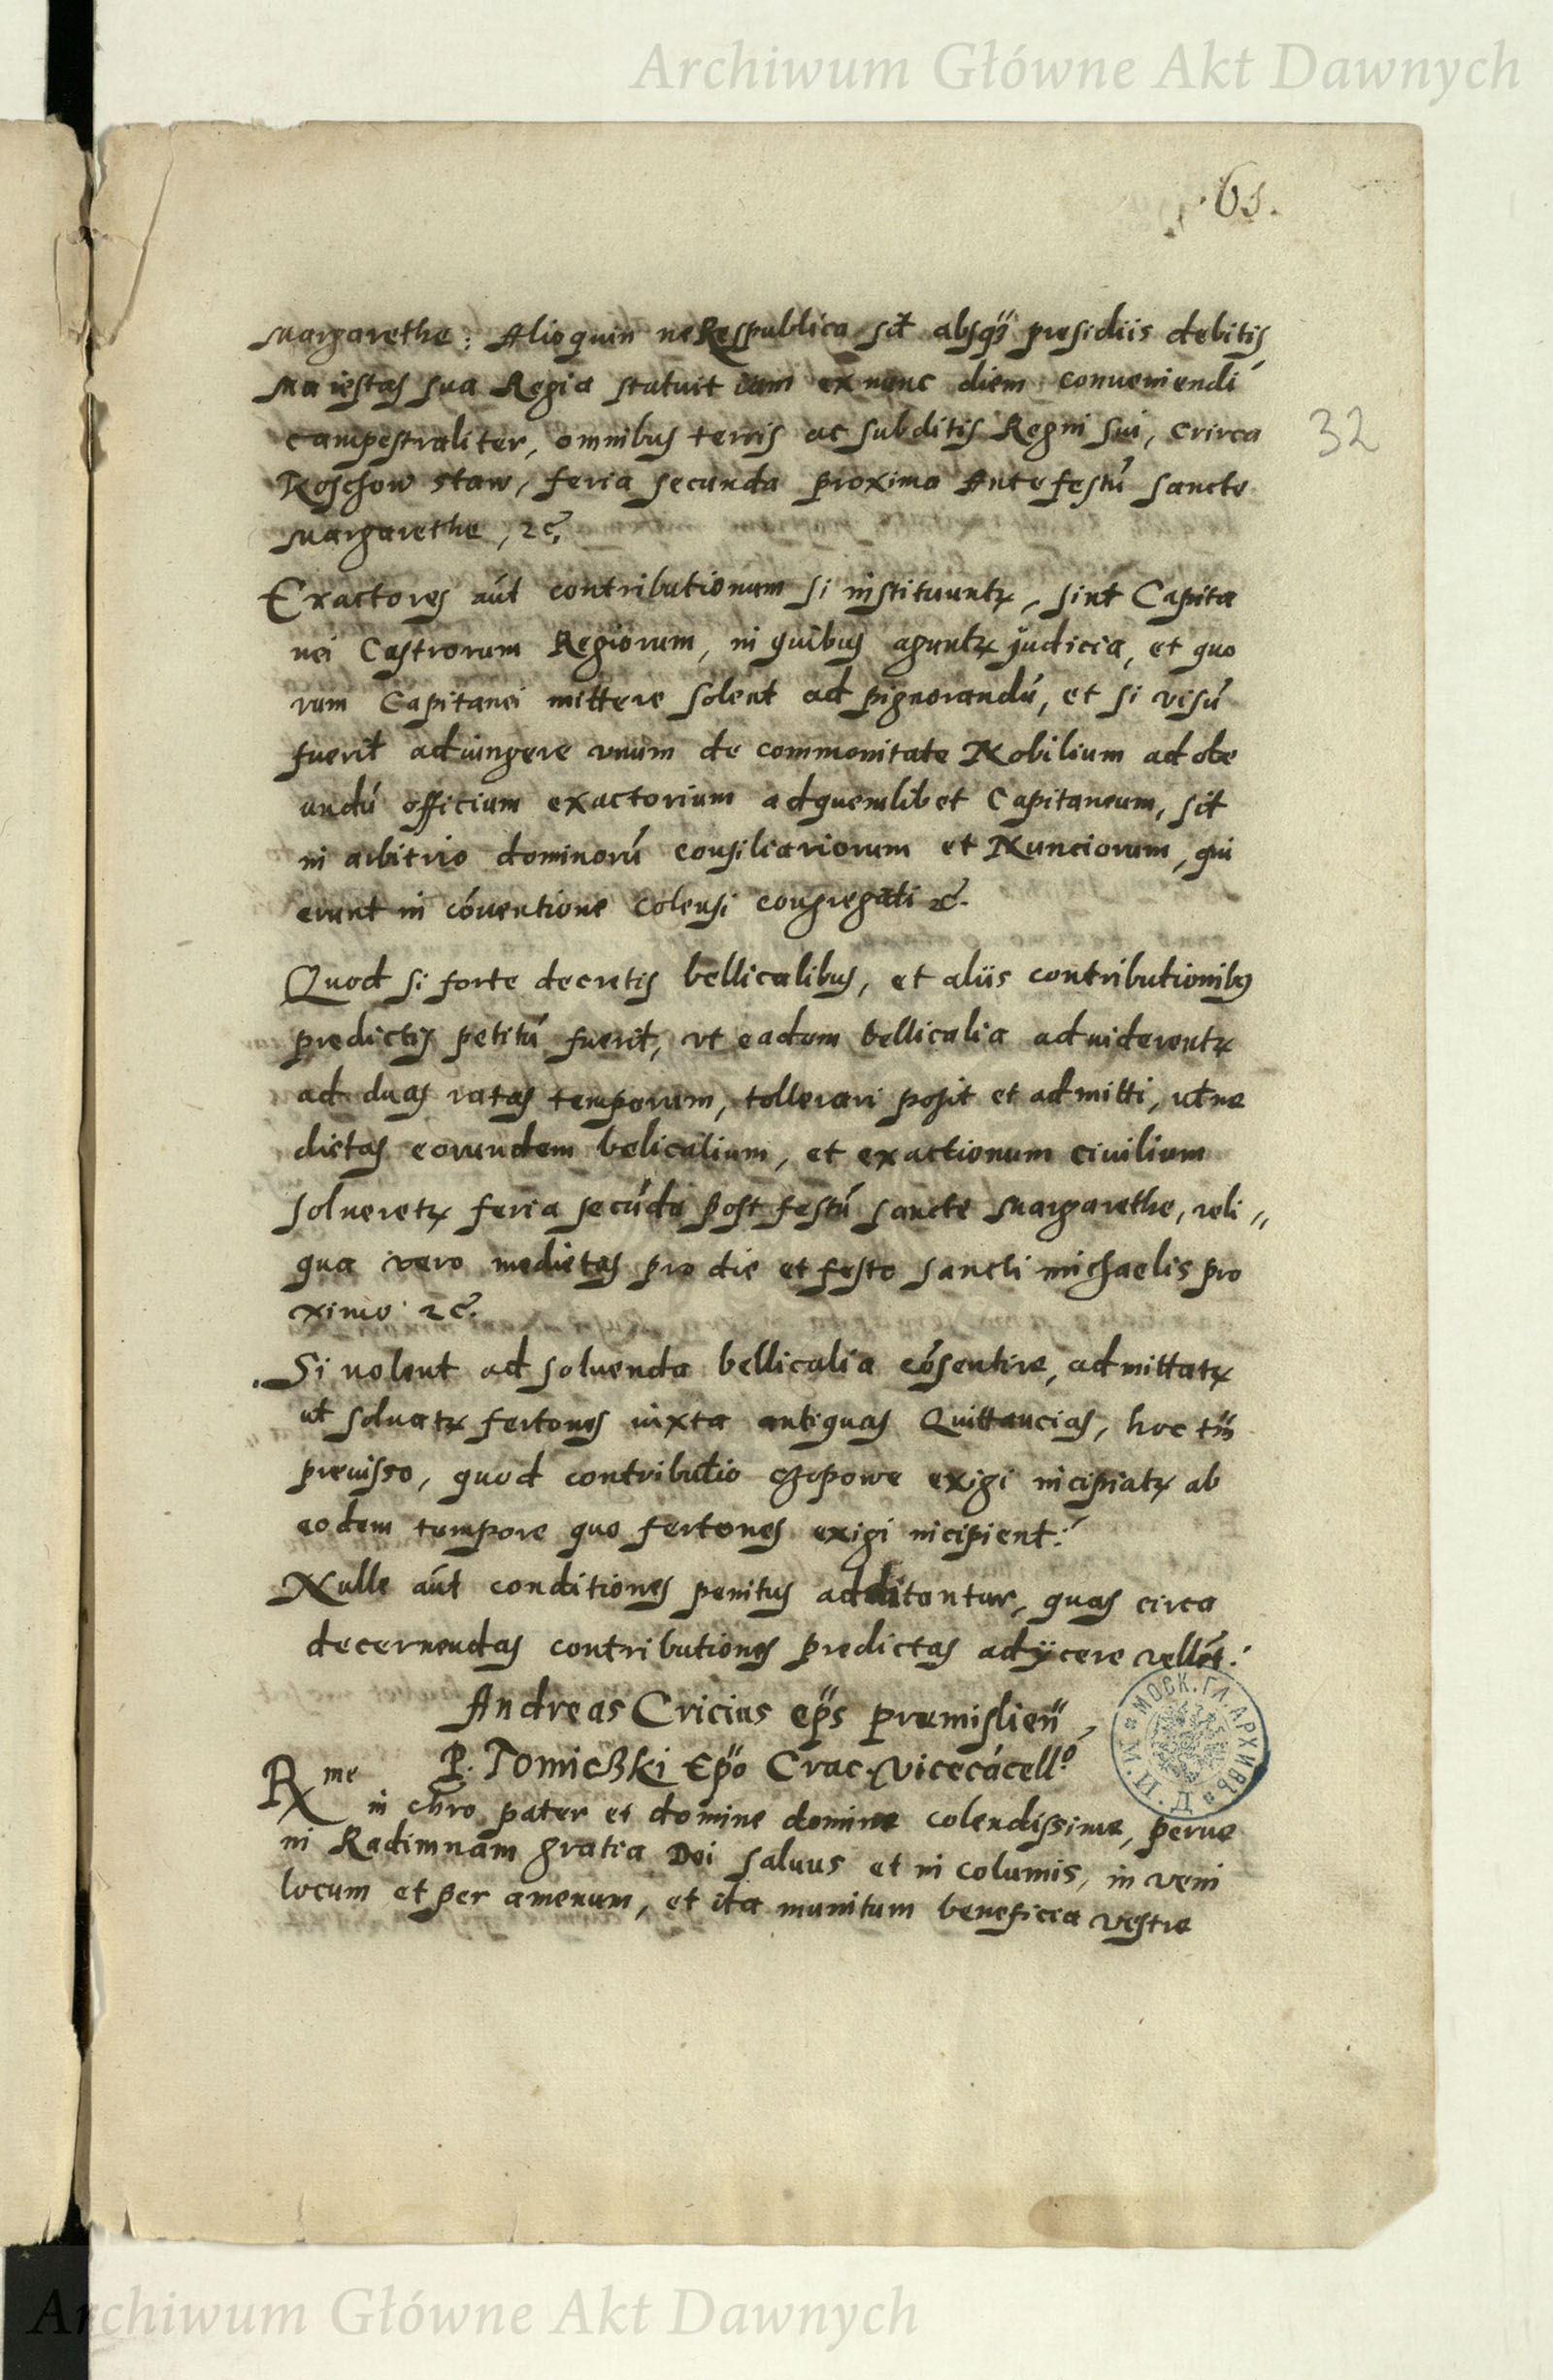 Archiwum Główne Akt Dawnych
.63.
32
Margarethe: Alioquin ne Respublica sit absq̃ presidiis debitis
Maiestas sua Regia statuit iam ex nunc diem conueniendi
campestraliter, omnibus terris ac subditis Regni sui, Crirca
Koschow staw, feria secunda proxima Ante festũ sancte
Margarethe, ⁊c̃.
Exactores aũt contributionum si instituuntꝝ, sint Capita
nei Castrorum Regiorum, in quibus aguntꝝ judicia, et quo
rum Capitanei mittere solent ad pignorandũ, et si visũ
fuerit adiungere vnum de commonitate Nobilium ad obe
undũ officium exactorium ad quemlibet Capitaneum, sit
in arbitrio dominorũ consiliariorum et Nunciorum, qui
erunt in cõuentione Colensi congregati ⁊c̃.
Quod si forte decretis bellicalibus, et aliis contributionibꝯ
predictis petitũ fuerit, vt eadem bellicalia adiuiderentꝝ
ad duas ratas temporum, tollerari possit et admitti, ut ne
dietas eorundem belicalium, et exactionum ciuilium
solueretꝝ feria secũda post festũ sancte Margarethe, reli〃
qua vero medietas pro die et festo sancti michaelis pro
ximo ⁊c̃.
Si nolent ad soluenda bellicalia cõsentire, admittatꝝ
ut soluatꝝ fertones iuxta antiquas Quittancias, hoc tñ
preuisso, quod contributio czopowe exigi incipiatꝝ ab
eodem tempore quo fertones exigi incipient:
Nulle aũt conditiones penitus additontur, quas circa
decernendas contributiones predictas adÿcere vellẽt:
Andreas Cricius ep̃s premislien̄
P. Tomiczki Ep̃o Crac. Vicecãcell⁰
R me in chro pater et domine domine colendissime, perue
ni Radimnam gratia Dei saluus et in columis, in veni
locum et per amenum, et ita munitum beneficia vestre
МОСК. ГЛ. АРХИВЪ М.И.Д.
Archiwum Główne Akt Dawnych